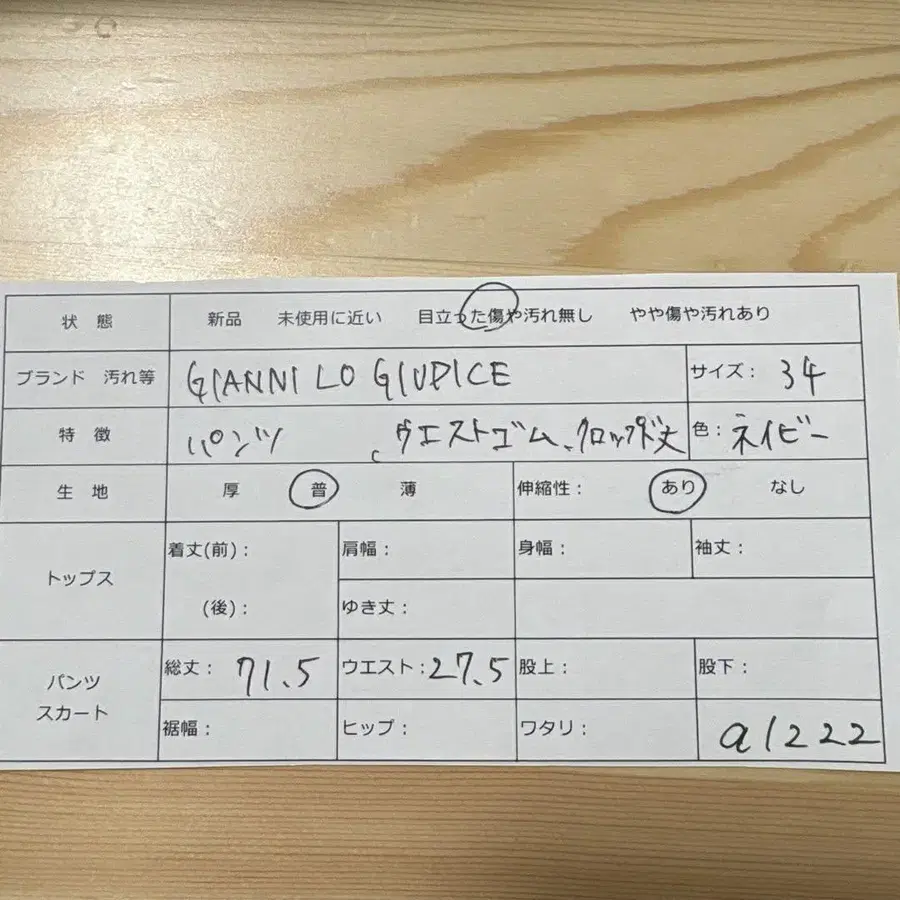 状 態 新品 未使用に近い 目立った傷や汚れ無し やや傷や汚れあり
ブランド 汚れ等 GIANNI LO GIUDICE サイズ： 34
特 徴 パンツ 、ウエストゴム、クロップド丈 色： ネイビー
生 地 厚 普 薄 伸縮性： あり なし
トップス 着丈(前)： 肩幅： 身幅： 袖丈：
(後)： ゆき丈：
パンツ スカート 総丈： 71.5 ウエスト： 27.5 股上： 股下：
裾幅： ヒップ： ワタリ： a1222